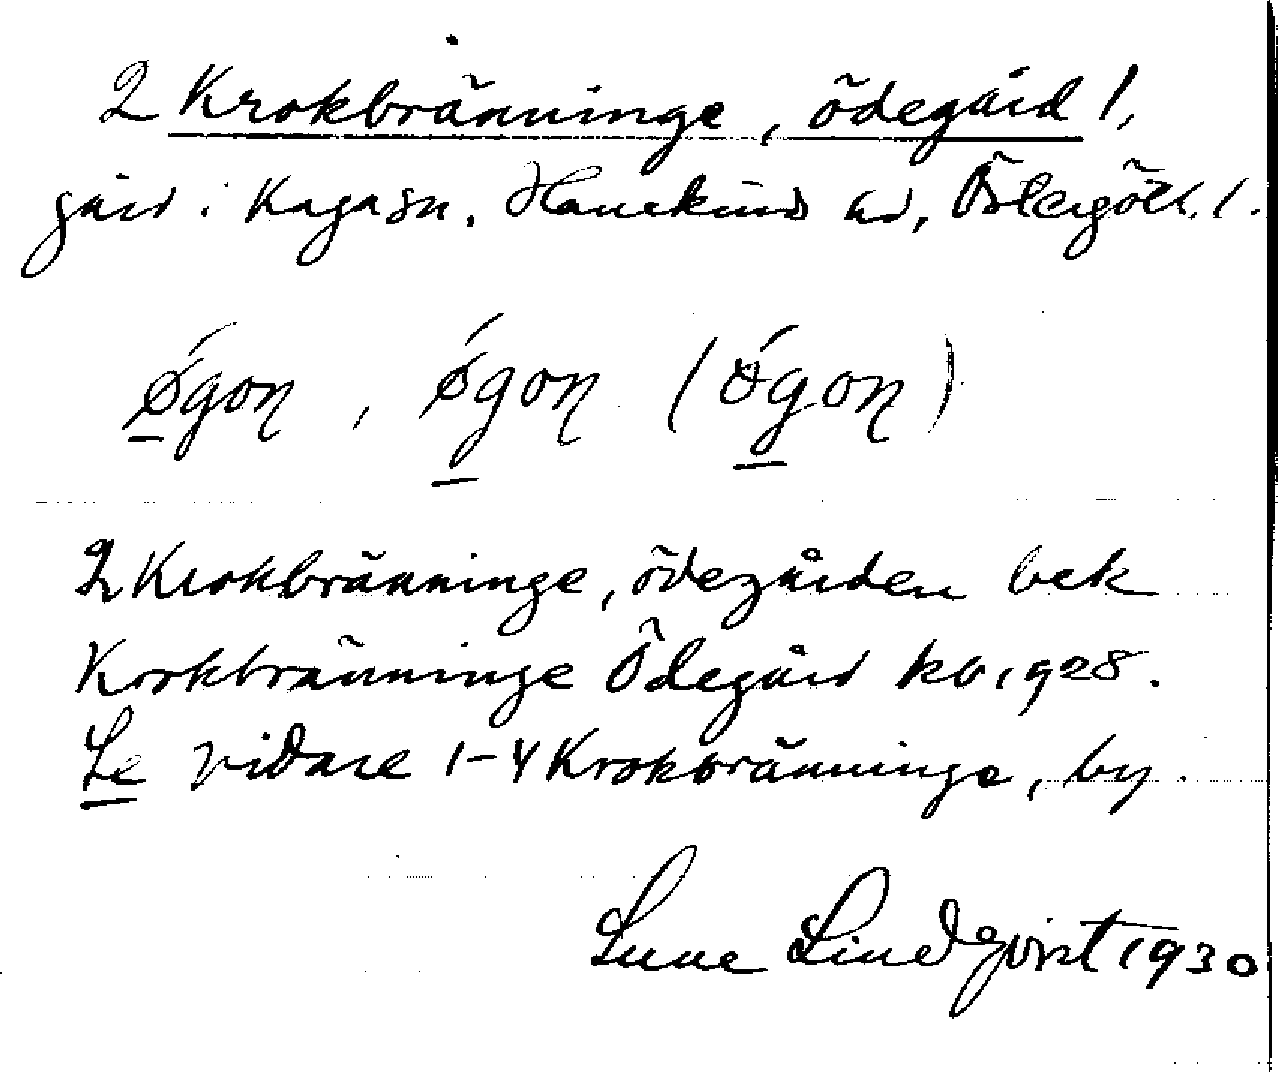 2 Krokbränninge, ödegård 1,
gård i Kaga sn, Hanekinds hd, Östergötl. l.
ǿgoŋ, ǿgoŋ (ǿgoŋ)
2 Krokbränninge, ödegården bek
Krokbränninge Ödegård kb 1928.
Se vidare 1-4 Krokbränninge, by
Sune Lindqvist 1930